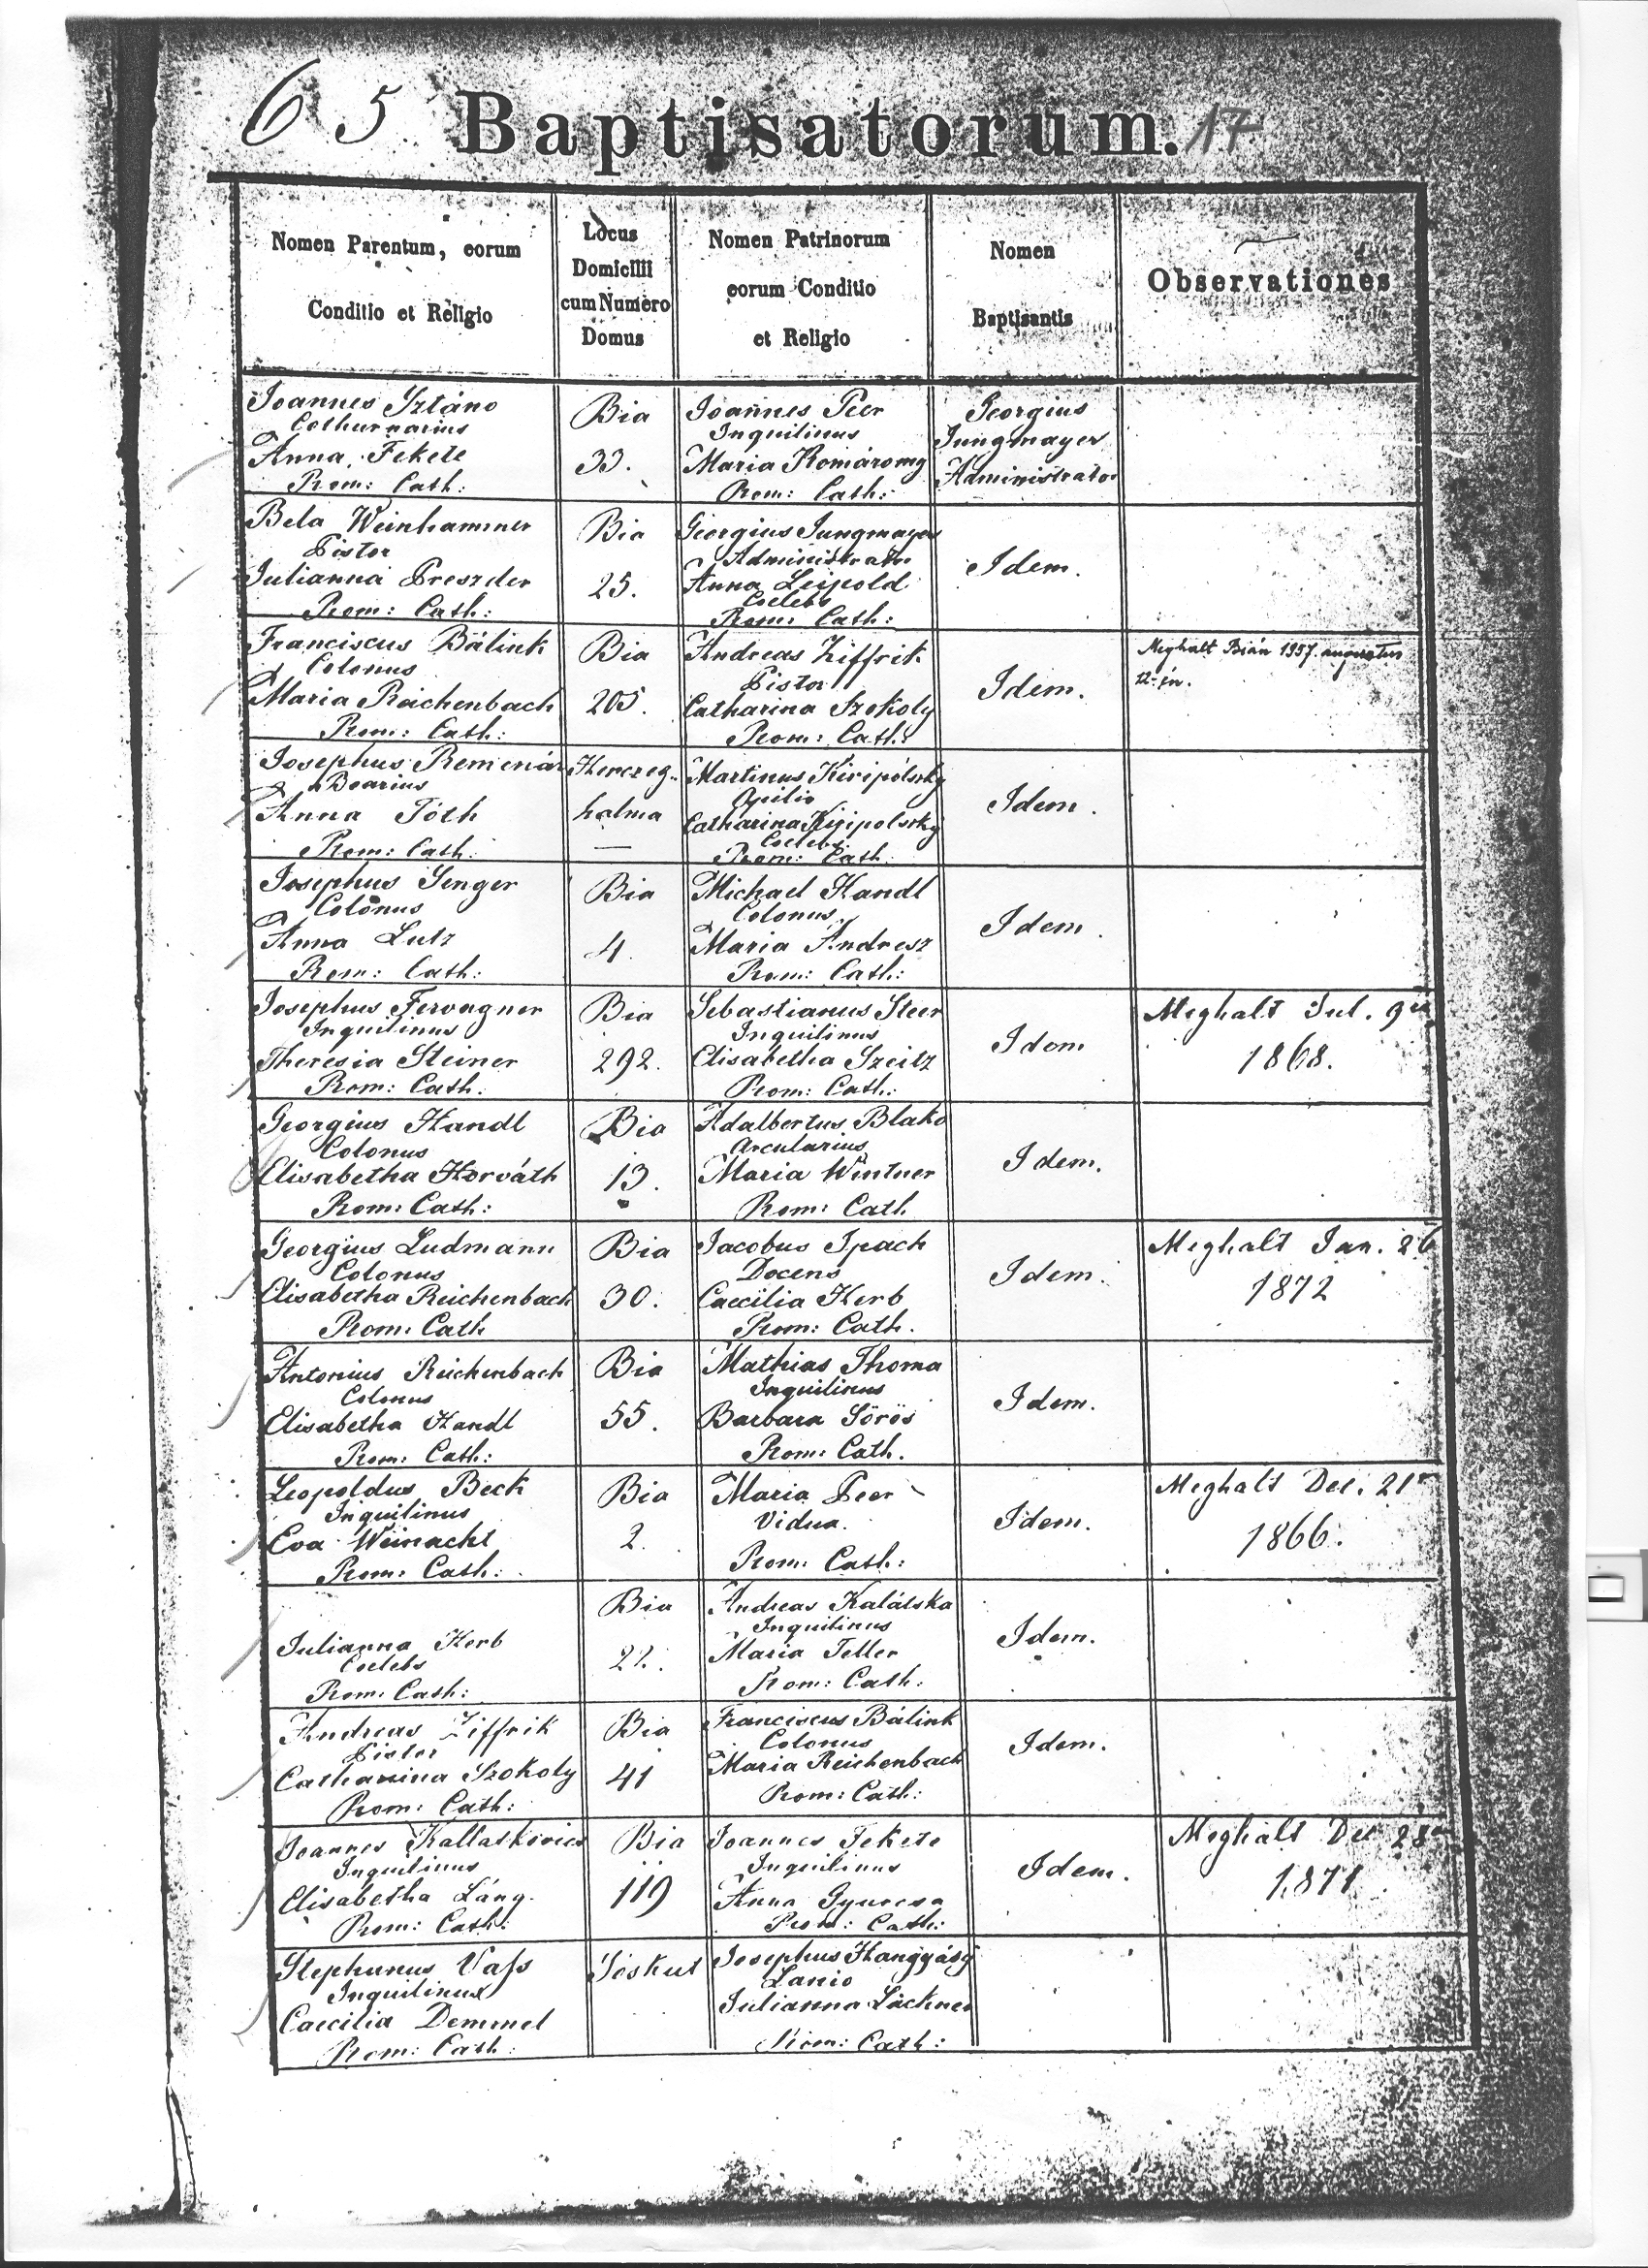 65 Baptisatorum. 17
Nomen Parentum, eorum
Conditio et Religio
Locus
Domicilii
cum Numero
Domus
Nomen Patrinorum
eorum Conditio
et Religio
Nomen
Baptisantis
Observationes
Joannes Sztáno
Cothurnarius
Anna Fekete
Rom: Cath:
Bia
33.
Joannes Peer
Inquilinus
Maria Komáromy
Rom: Cath:
Georgius
Jungmayer
Administrator
Bela Weinhammer
Pistor
Julianna Preszder
Rom: Cath:
Bia
25.
Georgius Jungmayer
Administrator
Anna Leipold
Coelebs
Rom: Cath:
Idem.
Franciscus Bálink
Colonus
Maria Reichenbach
Rom: Cath:
Bia
205.
Andreas Ziffrik
Pistor
Catharina Szokoly
Rom: Cath:
Idem.
Meghalt Bián 1957. augusztus
12-én.
Josephus Remenár
Boarius
Anna Tóth
Rom: Cath:
Herczeg-
halma
—
Martinus Kiripolszky
Opilio
Catharina Kiripolszky
Coelebs
Rom: Cath:
Idem.
Josephus Senger
Colonus
Anna Lutz
Rom: Cath:
Bia
4.
Michael Handl
Colonus
Maria Andresz
Rom: Cath:
Idem.
Josephus Ferwagner
Inquilinus
Theresia Steiner
Rom: Cath:
Bia
292.
Sebastianus Steer
Inquilinus
Elisabetha Szeitz
Rom: Cath:
Idem
Meghalt Jul. 9én
1868.
Georgius Handl
Colonus
Elisabetha Horváth
Rom: Cath:
Bia
13.
Adalbertus Blako
Arcularius
Maria Wintner
Rom: Cath
Idem.
Georgius Ludmann
Colonus
Elisabetha Reichenbach
Rom: Cath
Bia
30.
Jacobus Spach
Docens
Caecilia Herb
Rom: Cath.
Idem.
Meghalt Jan. 26
1872
Antonius Reichenbach
Colonus
Elisabetha Handl
Rom: Cath:
Bia
55.
Mathias Thoma
Inquilinus
Barbara Sörös
Rom: Cath.
Idem.
Leopoldus Beck
Inquilinus
Eva Weinacht
Rom: Cath:
Bia
2.
Maria Peer
Vidua.
Rom: Cath:
Idem.
Meghalt Dec. 21
1866.
Julianna Herb
Coelebs
Rom: Cath:
Bia
22.
Andreas Kalátska
Inquilinus
Maria Teller
Rom: Cath.
Idem.
Andreas Ziffrik
Pistor
Catharina Szokoly
Rom: Cath:
Bia
41
Franciscus Bálink
Colonus
Maria Reichenbach
Rom: Cath:
Idem.
Joannes Kallaskovics
Inquilinus
Elisabetha Láng.
Rom: Cath:
Bia
119
Joannes Fekete
Inquilinus
Anna Gyurcsa
Rom: Cath:
Idem.
Meghalt Dec 28
1871
Stephanus Vass
Inquilinus
Caecilia Demmel
Rom: Cath:
Sóskut
Josephus Hanggásy
Lanio
Julianna Lackner
Rom: Cath: